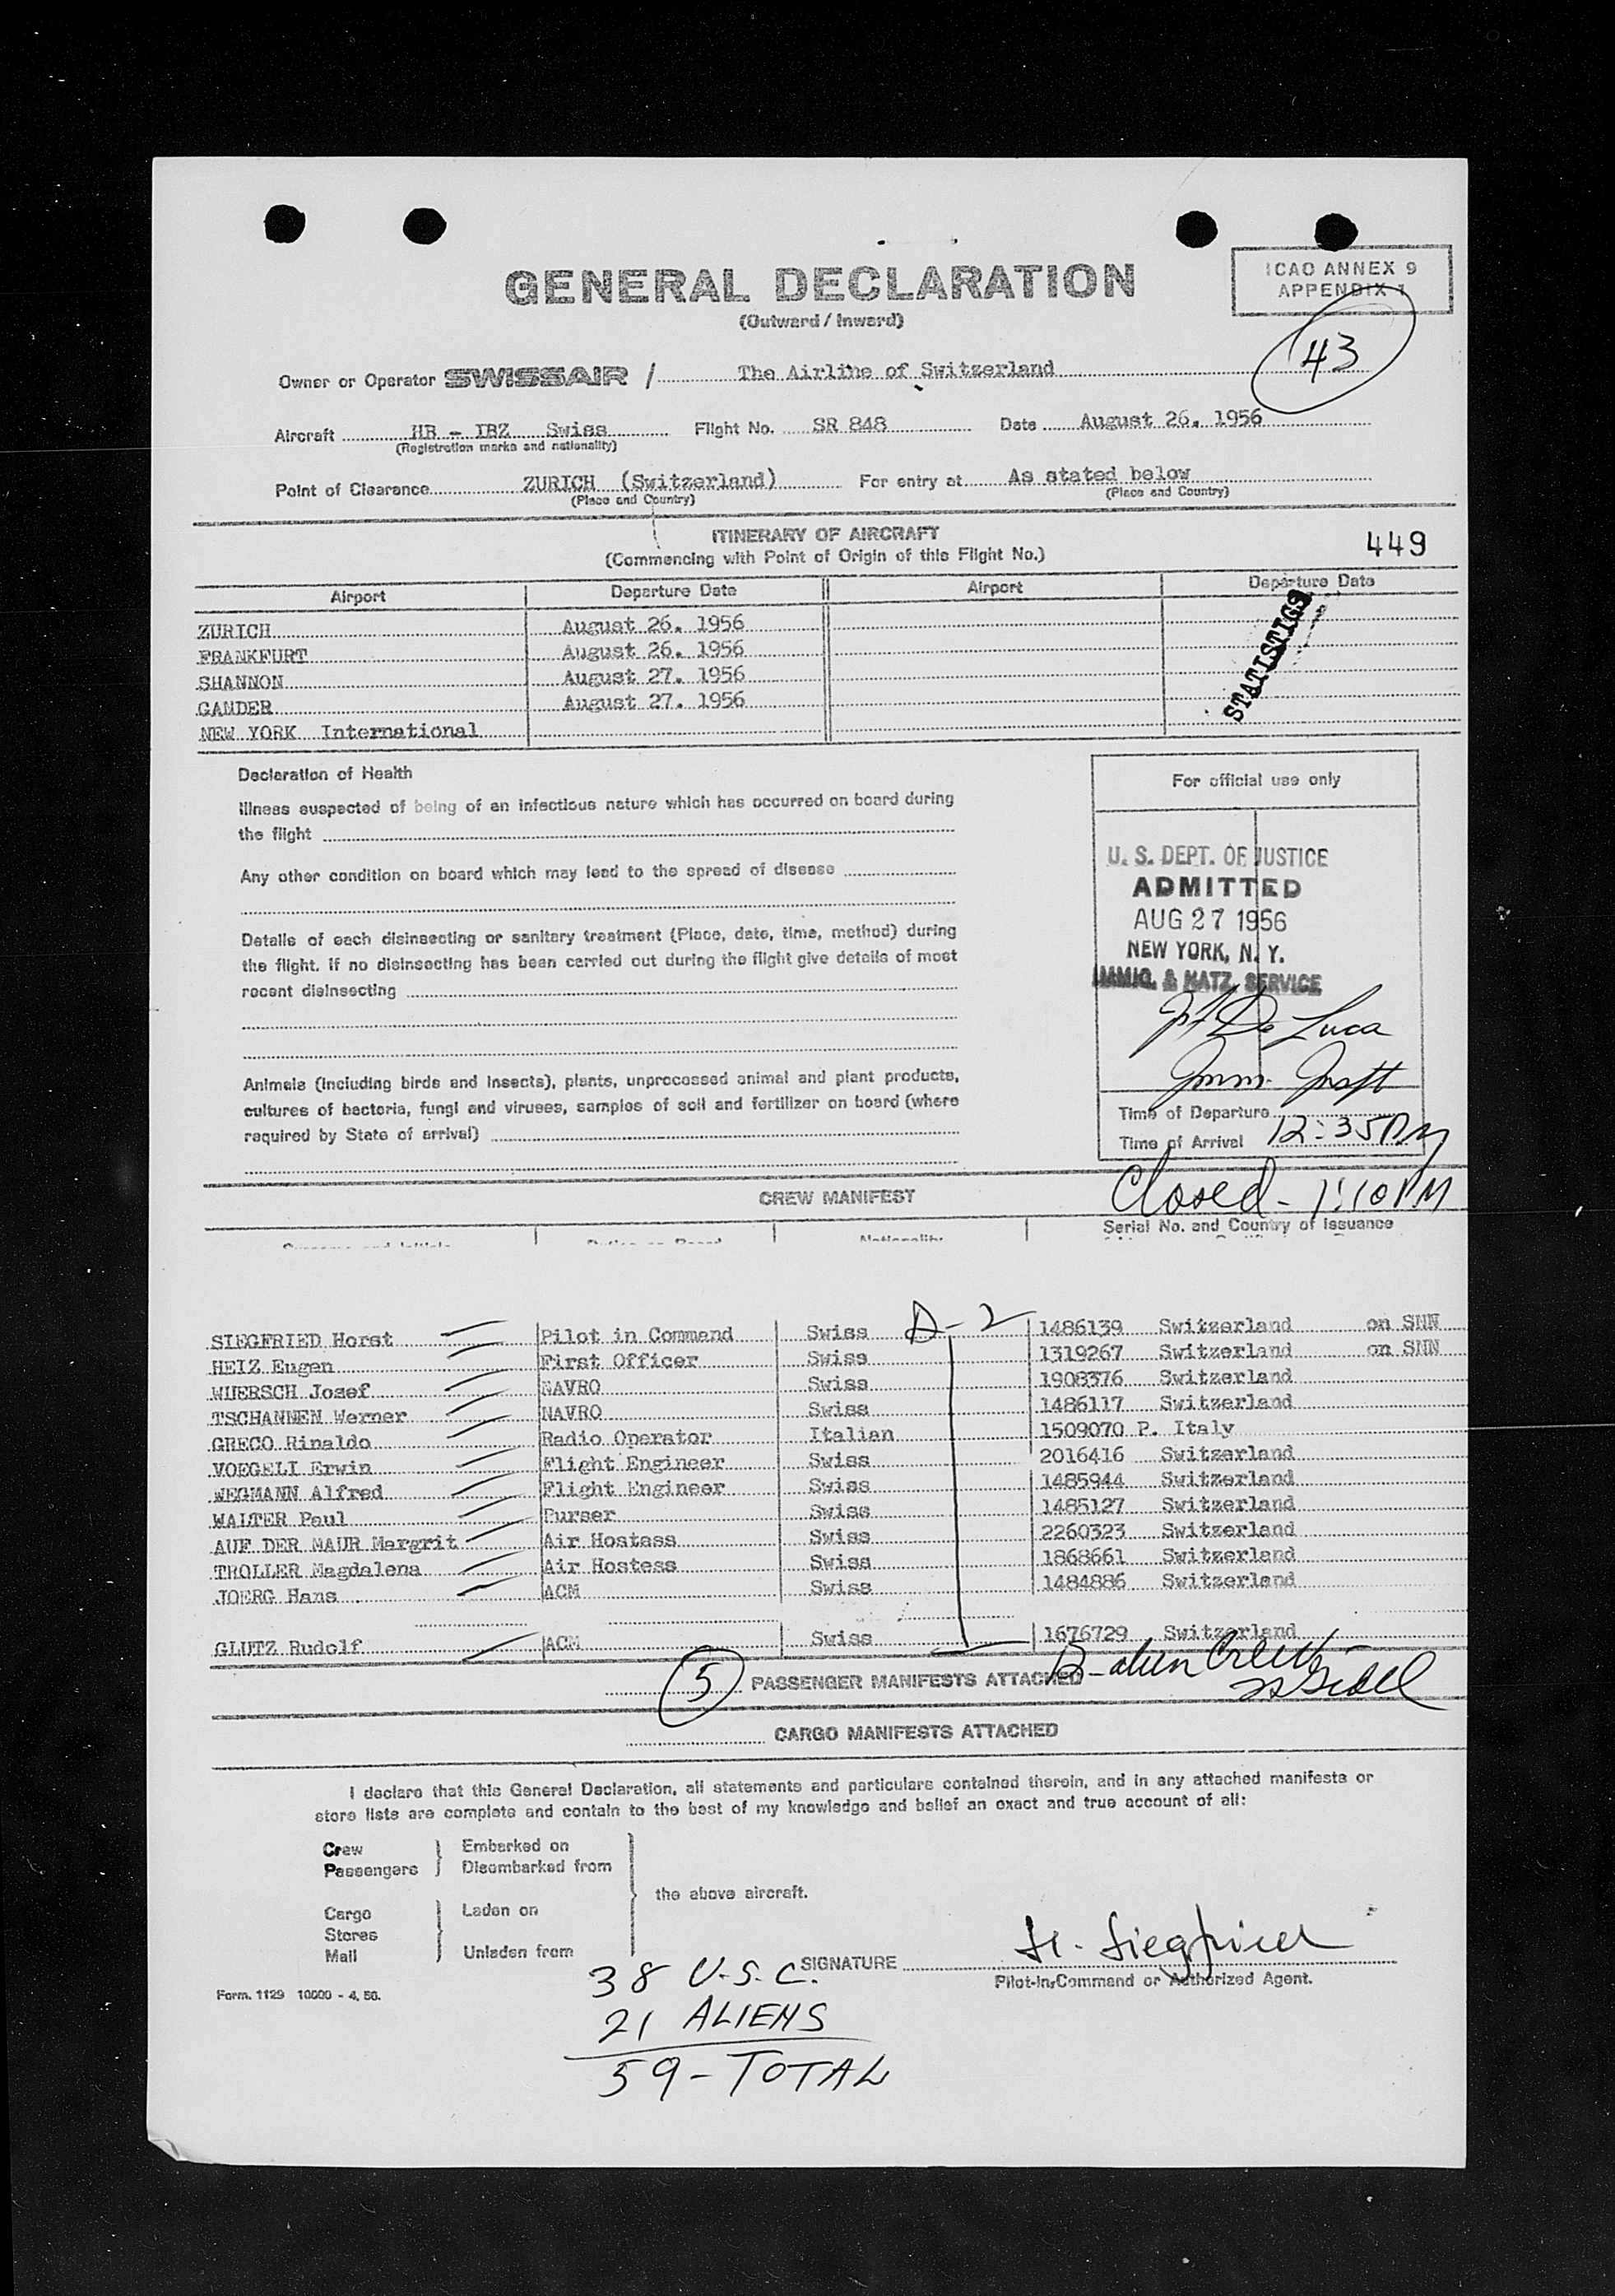 GENERAL DECLARATION
(Outward / Inward)
ICAO ANNEX 9
APPENDIX 1
43
Owner or Operator SWISSAIR / The Airline of Switzerland
Aircraft HB - IBZ Swiss Flight No. SR 848 Date August 26. 1956
(Registration marks and nationality)
Point of Clearance ZURICH (Switzerland) For entry at As stated below
(Place and Country) (Place and Country)
ITINERARY OF AIRCRAFT
(Commencing with Point of Origin of this Flight No.)
449
Airport Departure Date Airport Departure Date
ZURICH August 26. 1956
FRANKFURT August 26. 1956
SHANNON August 27. 1956
GANDER August 27. 1956
NEW YORK International
STATISTICS
Declaration of Health
Illness suspected of being of an infectious nature which has occurred on board during
the flight
Any other condition on board which may lead to the spread of disease
Details of each disinsecting or sanitary treatment (Place, date, time, method) during
the flight. If no disinsecting has been carried out during the flight give details of most
recent disinsecting
Animals (including birds and insects), plants, unprocessed animal and plant products,
cultures of bacteria, fungi and viruses, samples of soil and fertilizer on board (where
required by State of arrival)
For official use only
U. S. DEPT. OF JUSTICE
ADMITTED
AUG 27 1956
NEW YORK, N. Y.
IMMIG. & NATZ. SERVICE
De Luca
Imm. Inspt
Time of Departure
Time of Arrival 12:35PM
Closed - 1:10PM
CREW MANIFEST
Serial No. and Country of Issuance
A-2
SIEGFRIED Horst Pilot in Command Swiss 1486139 Switzerland on SNN
HEIZ Eugen First Officer Swiss 1319267 Switzerland on SNN
WUERSCH Josef NAVRO Swiss 1908376 Switzerland
TSCHANNEN Werner NAVRO Swiss 1486117 Switzerland
GRECO Rinaldo Radio Operator Italian 1509070 P. Italy
VOEGELI Erwin Flight Engineer Swiss 2016416 Switzerland
WEGMANN Alfred Flight Engineer Swiss 1485944 Switzerland
WALTER Paul Purser Swiss 1485127 Switzerland
AUF DER MAUR Margrit Air Hostess Swiss 2260323 Switzerland
TROLLER Magdalena Air Hostess Swiss 1868661 Switzerland
JOERG Hans ACM Swiss 1484886 Switzerland
GLUTZ Rudolf ACM Swiss 1676729 Switzerland
5 PASSENGER MANIFESTS ATTACHED
CARGO MANIFESTS ATTACHED
I declare that this General Declaration, all statements and particulars contained therein, and in any attached manifests or
store lists are complete and contain to the best of my knowledge and belief an exact and true account of all:
Crew Embarked on
Passengers Disembarked from
the above aircraft.
Cargo Laden on
Stores
Mail Unladen from
SIGNATURE H. Siegfried
Pilot-in-Command or Authorized Agent.
Form. 1129 10000 - 4. 56.
38 U.S.C.
21 ALIENS
59 - TOTAL